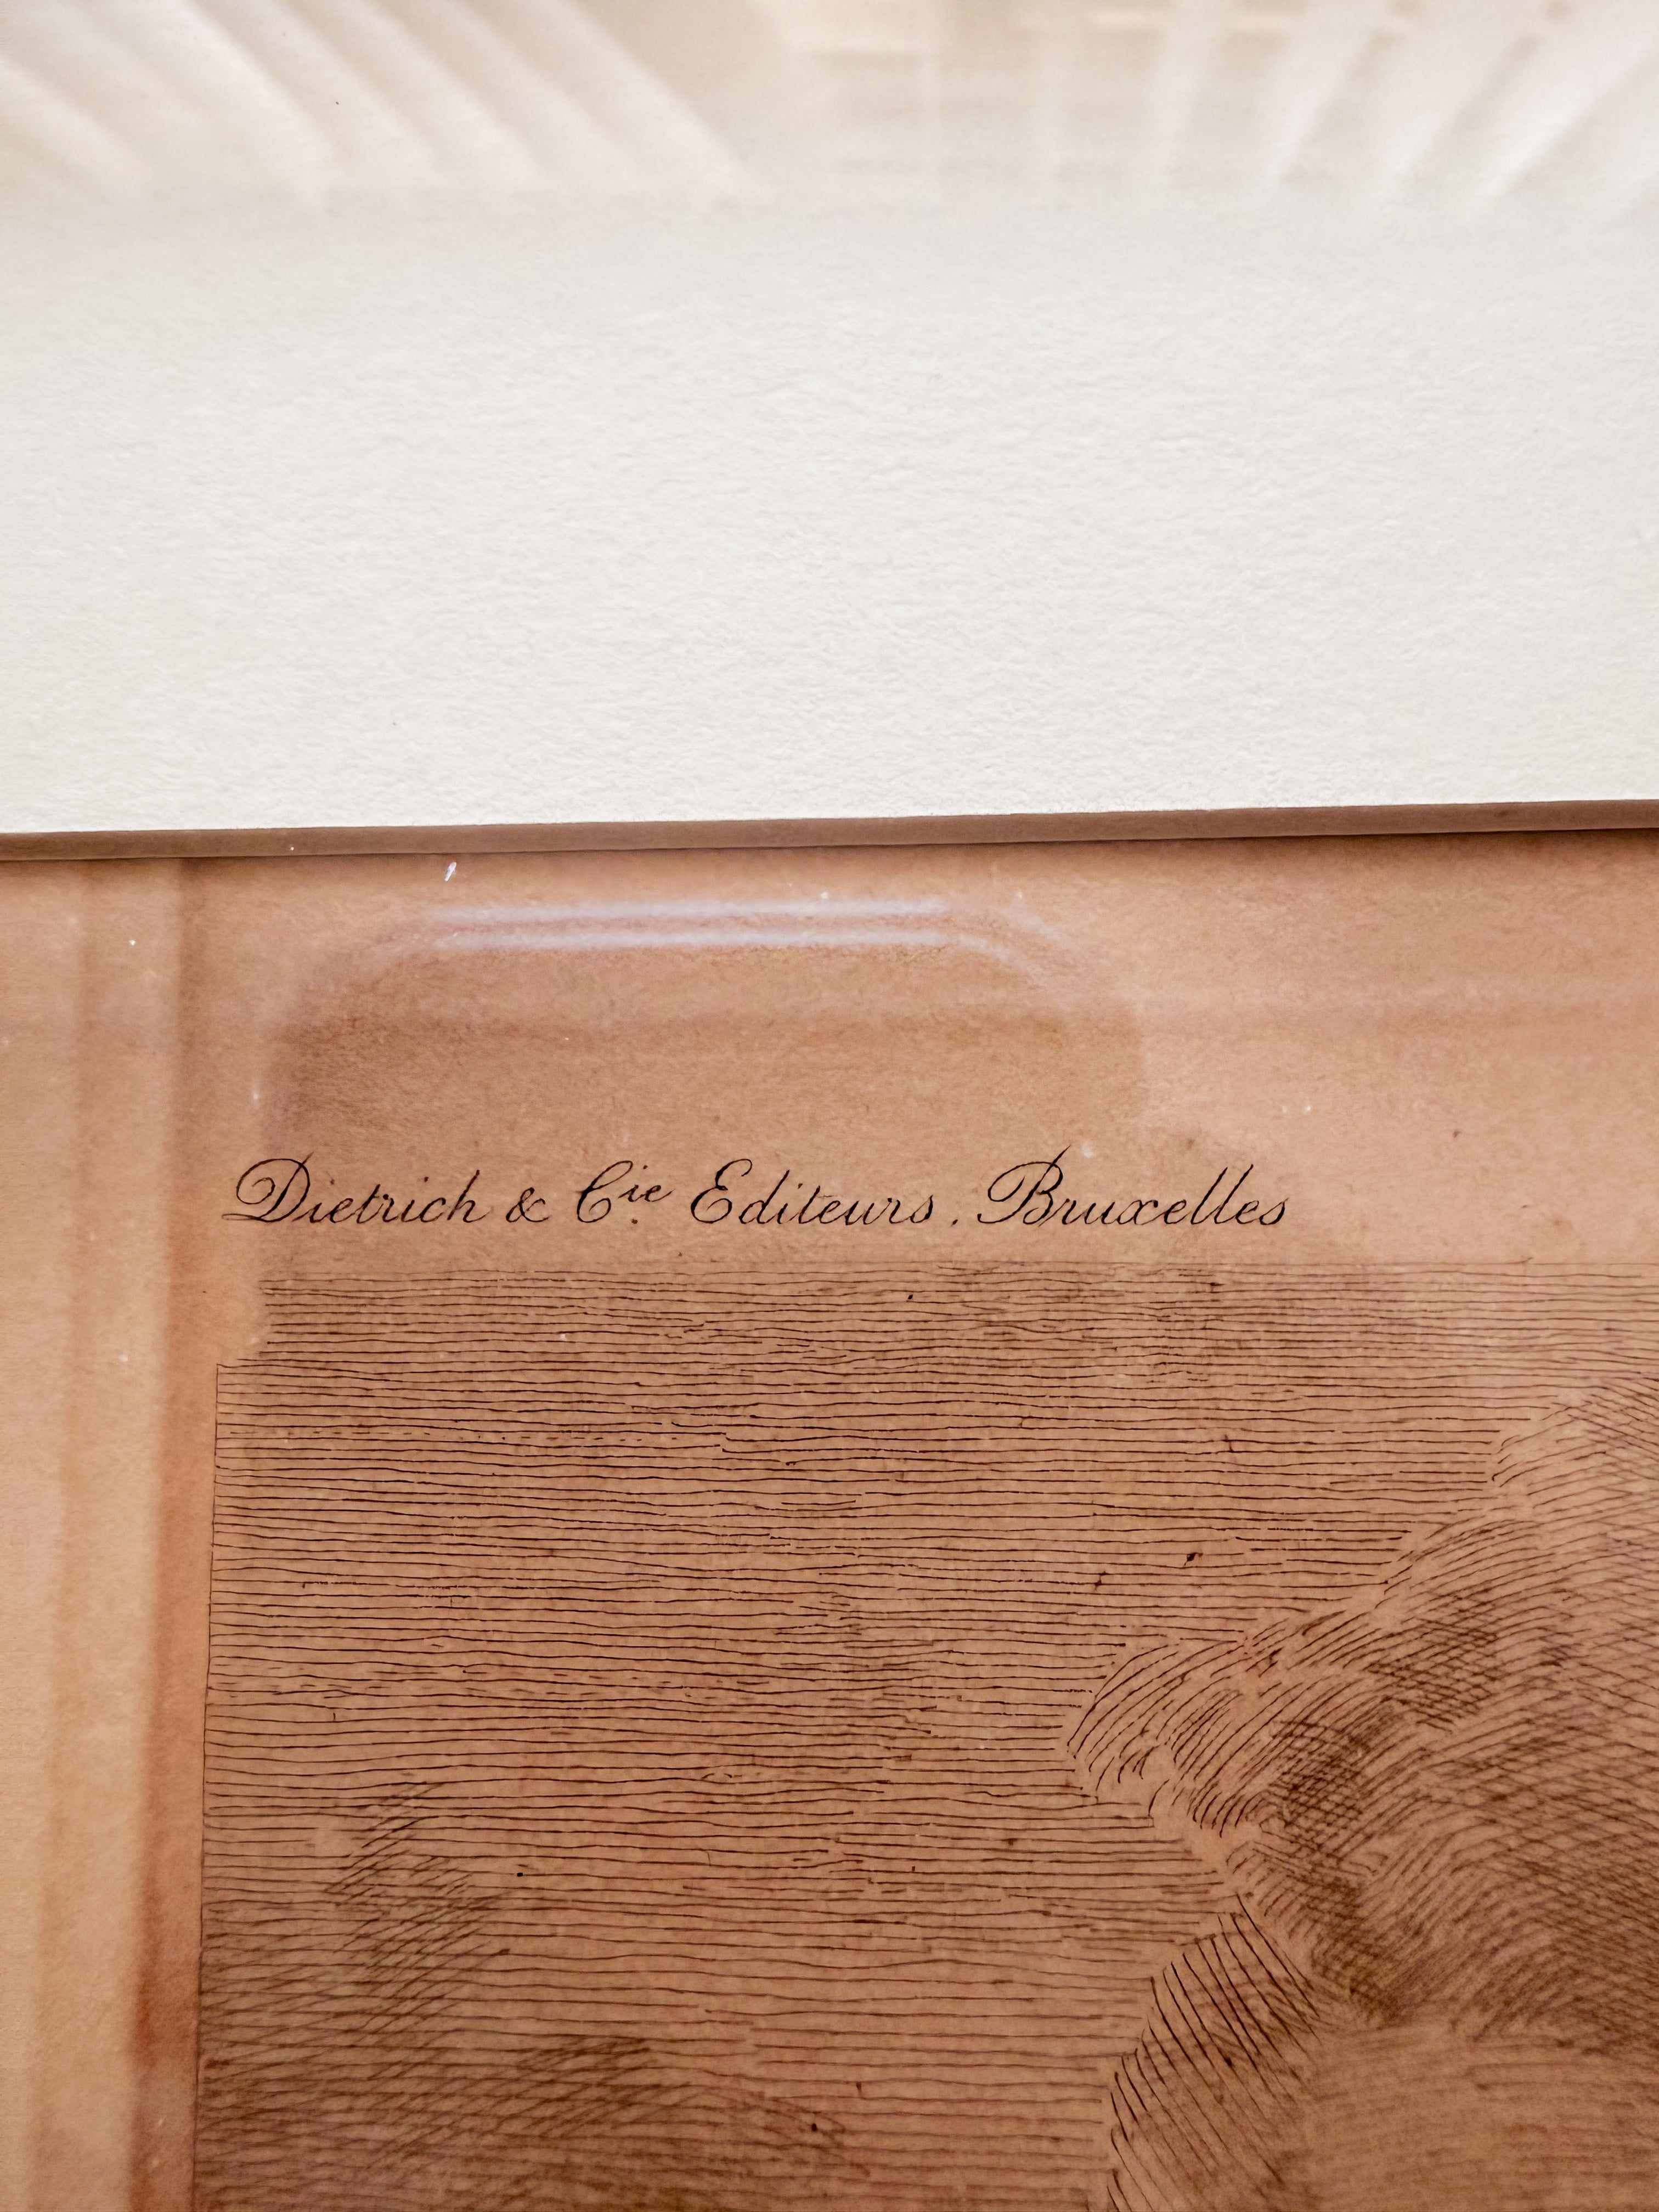 Dietrich & Cie. Editeurs. Bruxelles